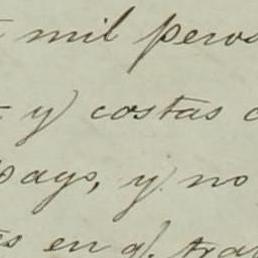 mil pesos
y costas
pago, y no
en q.